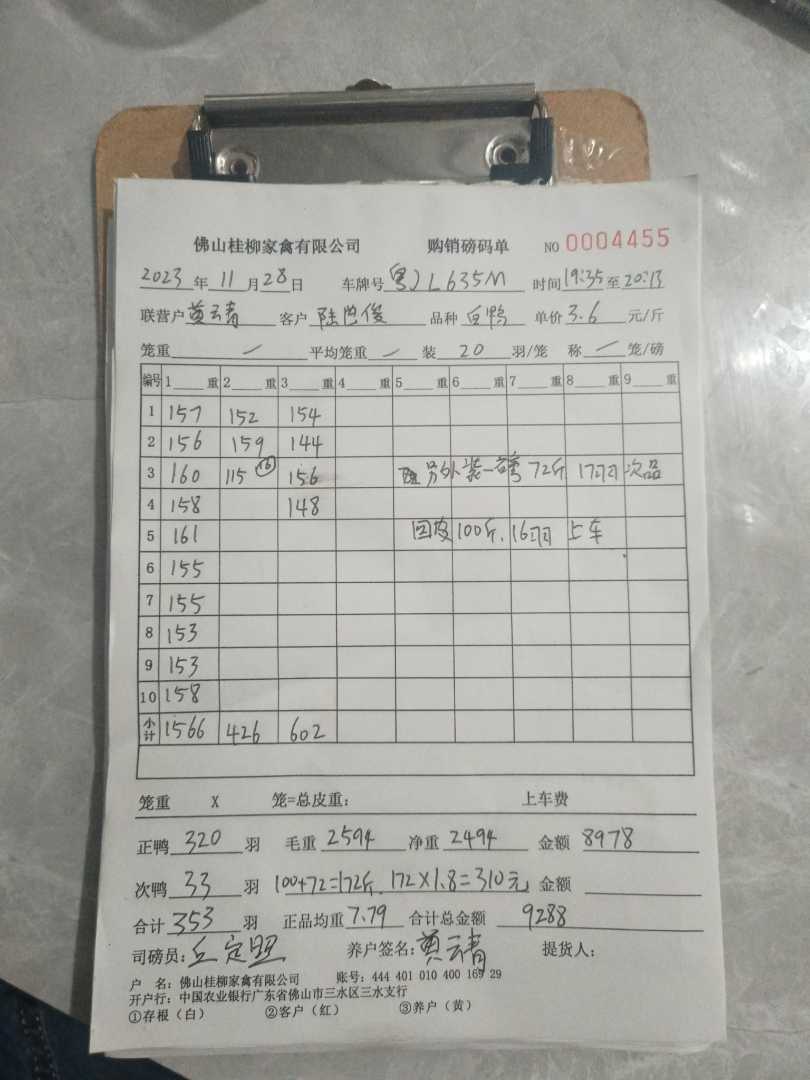 佛山桂柳家禽有限公司 购销磅码单 NO 0004455
2023年11月28日 车牌号 粤J L635M 时间19:35至20:13
联营户 莫云青 客户 陆 俊 品种 白鸭 单价3.6元/斤
笼重 / 平均笼重 / 装 20 羽/笼 称 / 笼/磅
编号 1 重 2 重 3 重 4 重 5 重 6 重 7 重 8 重 9 重
1 157 152 154
2 156 159 144
3 160 115 156 另外装一 72斤 17羽 次品
4 158 148
5 161 回皮100斤, 16羽 上车
6 155
7 155
8 153
9 153
10 158
小计 1566 426 602
笼重 X 笼=总皮重: 上车费
正鸭 320 羽 毛重 2594 净重 2494 金额 8978
次鸭 33 羽 100+72=172斤. 172×1.8=310元 金额
合计 353 羽 正品均重 7.79 合计总金额 9288
司磅员: 丘定盟 养户签名: 莫云青 提货人:
户 名: 佛山桂柳家禽有限公司 账号: 444 401 010 400 169 29
开户行: 中国农业银行广东省佛山市三水区三水支行
①存根(白) ②客户(红) ③养户(黄)